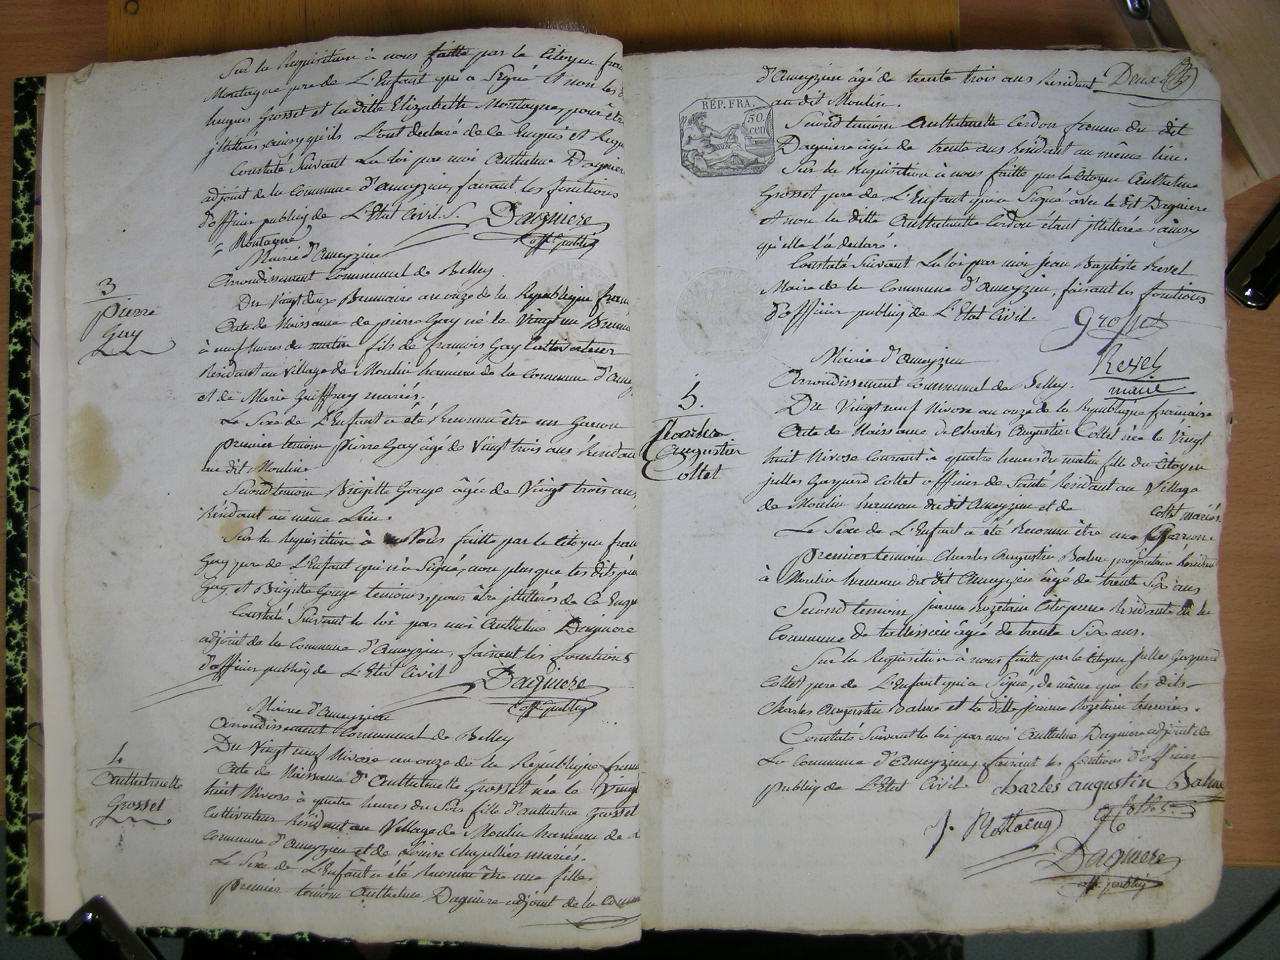 Sur la Requisition à nous faitte par le Citoyen fran
Montagne pere de L'Enfant qui a Signé et non les
hugues Grosset et laditte Elizabette Montagne, pour être
jlliterés, ainsy qu'ils L'ont declaré de la Enquis et Requ
Constaté Suivant La loi par moi Anthelme Dagniere
adjoint de la Commune d'Ameyzieu, faisant les fonctions
d'officier public de L'Etat Civil.
Dagniere
off. public
Montagne
Mairie d'Ameyzieu
Arrondissement Communal de Belley
3
Pierre
Gay
Du Vingt deux Brumaire an onze de la République fran
Acte de Naissance de pierre Gay né le Vingt un Brum
à neuf heures du matin fils de francois Gay Cultivateur
Résidant au Village de Moulin hameau de la Commune d'Am
et de Marie Guiffray mariés.
Le Sexe de L'Enfant a été Reconnu être un Garçon
premier temoin Pierre Gay âgé de Vingt trois ans Résidant
au dit Moulin
Second temoin Brigitte Gouge âgée de Vingt trois ans,
Résidant au même Lieu.
Sur la Requisition à Nous faitte par le Citoyen fran
Gay pere de L'Enfant qui n'a Signé, non plus que les dits pie
Gay et Brigitte Gouge temoins, pour être jlliterés de Ce Enqu
Constaté Suivant la loi par moi Anthelme Dagniere
adjoint de la Commune d'Ameyzieu, faisant les fonctions
d'officier public de L'Etat Civil
Dagniere
off. public
Mairie d'Ameyzieu
Arrondissement Communal de Belley
4.
Anthelmette
Grosset
Du Vingt neuf Nivose an onze de la République fran
Acte de Naissance d'Anthelmette Grosset née le Vingt
huit Nivose à quatre heures du Soir fille d'Anthelme Grosset
Cultivateur Résidant au Village de Moulin hameau de
Commune d'Ameyzieu et de Louise mariés.
Le Sexe de L'Enfant a été Reconnu être une fille.
premier temoin Anthelme Dagniere adjoint de la Comm
d'Ameyzieu âgé de trente trois ans Résidant Deux
au dit Moulin.
RÉP. FRA.
50
cen
Second temoin Anthelmette Cordon femme du dit
Dagniere agée de trente ans Résidant au même lieu.
Sur la Requisition à nous faitte par le Citoyen Anthelme
Grosset pere de L'Enfant qui a Signé avec le dit Dagniere
et non la ditte Anthelmette Cordon étant jlliterée ainsy
qu'elle l'a declaré.
Constaté Suivant La loi par moi Jean Baptiste Revel
Maire de la Commune d'Ameyzieu, faisant les fonctions
d'officier public de L'Etat Civil.
Grosset
Revel
maire
Mairie d'Ameyzieu
Arrondissement Communal de Belley.
5.
Charles
Augustin
Collet
Du Vingt neuf Nivose an onze de la République francaise
Acte de Naissance de Charles Augustin Collet née le Vingt
huit Nivose Courant à quatre heures du matin fille du Citoyen
jules Gaspard Collet officier de Santé Résidant au Village
de Moulin hameau du dit Ameyzieu et de Collet mariés
Le Sexe de L'Enfant a été Reconnu être un Garçon
premier temoin Charles Augustin Balme propriétaire Résidant
à Moulin hameau du dit Ameyzieu âgé de trente Six ans
Second temoin Citoyenne Résidante de la
Commune de talissieu âgée de trente Six ans.
Sur la Requisition à nous faitte par le Citoyen Jules Gaspard
Collet pere de L'Enfant qui a Signé, de même que les dits
Charles Augustin Balme et la ditte femme temoins.
Constaté Suivant la loi par moi Anthelme Dagniere adjoint de
La Commune d'Ameyzieu, faisant les fonctions d'officier
public de L'Etat Civil.
charles augustin Balme
Collet
Dagniere
off. public